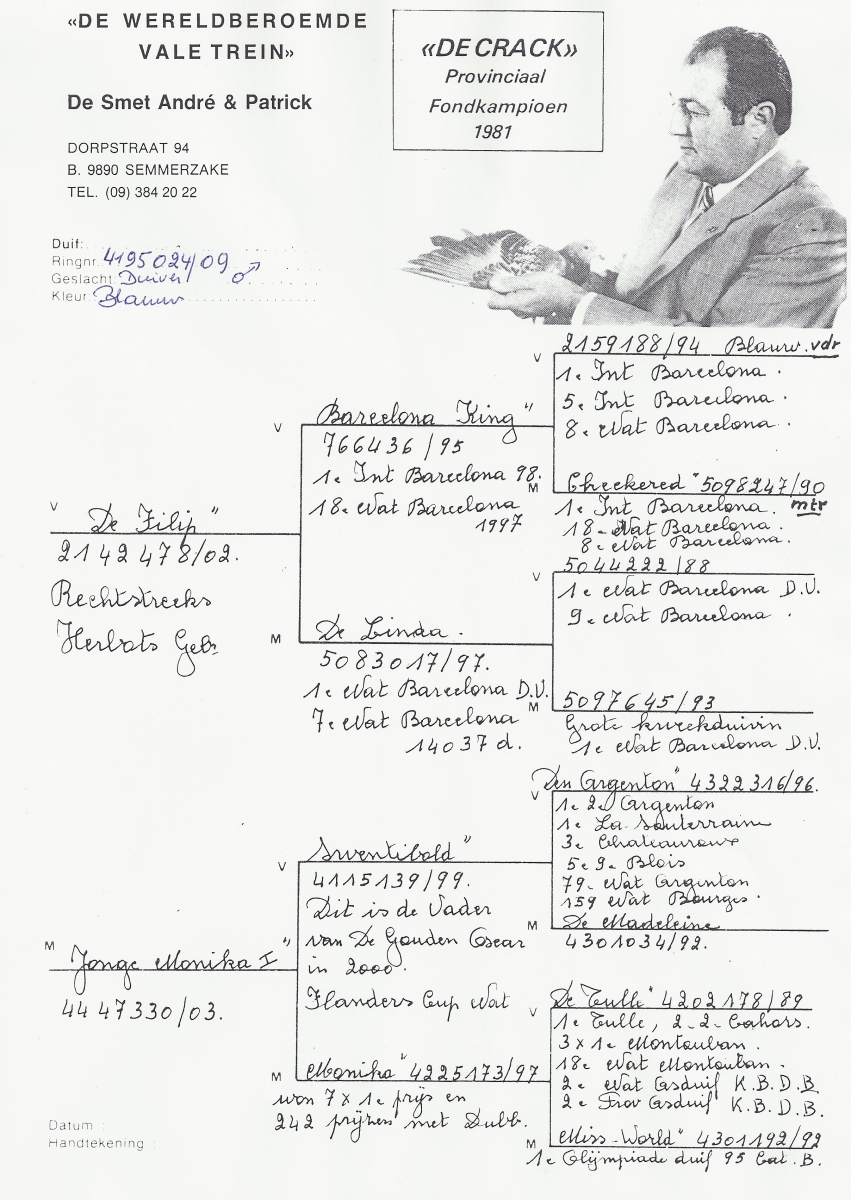 «DE WERELDBEROEMDE
VALE TREIN»
De Smet André & Patrick
DORPSTRAAT 94
B. 9890 SEMMERZAKE
TEL. (09) 384 20 22
«DE CRACK»
Provinciaal
Fondkampioen
1981
Duif:
Ringnr 4195024/09 ♂
Geslacht Duiver
Kleur Blauw
V De Filip"
2142478/02.
Rechtstreeks
Herbots Gebr
V Barcelona King"
766436/95
1e Int Barcelona 98.
18e Nat Barcelona
1997
V 2159188/94 Blauw. vdr
1e Int Barcelona.
5e Int Barcelona.
8e Nat Barcelona.
M Checkered" 5098247/90
1e Int Barcelona. mtr
18e Nat Barcelona.
8e Nat Barcelona.
M De Linda.
5083017/97.
1e Nat Barcelona D.V.
7e Nat Barcelona
14037 d.
V 5044222/88
1e Nat Barcelona D.V.
9e Nat Barcelona.
M 5097645/93
Grote kweekduivin
1e Nat Barcelona D.V.
M Jonge Monika I"
4447330/03.
V Swentibold"
4115139/99.
Dit is de Vader
van De Gouden Oscar
in 2000.
Flanders Cup Nat
V Den Argenton" 4322316/96.
1e 2e Argenton
1e La Souterraine
3e Chateauroux
5e 9e Blois
79e Nat Argenton
159 Nat Bourges.
M De Madeleine
4301034/92.
M Monika" 4225173/97
won 7 x 1e prijs en
242 prijzen met Dubb.
V De Tulle" 4202178/89
1e Tulle, 2-2-Cahors.
3 x 1e Montauban.
18e Nat Montauban.
2e Nat Asduif K.B.D.B
2e Prov Asduif K.B.D.B.
M Miss-World" 4301192/92
1e Olijmpiade duif 95 Cat. B.
Datum :
Handtekening :